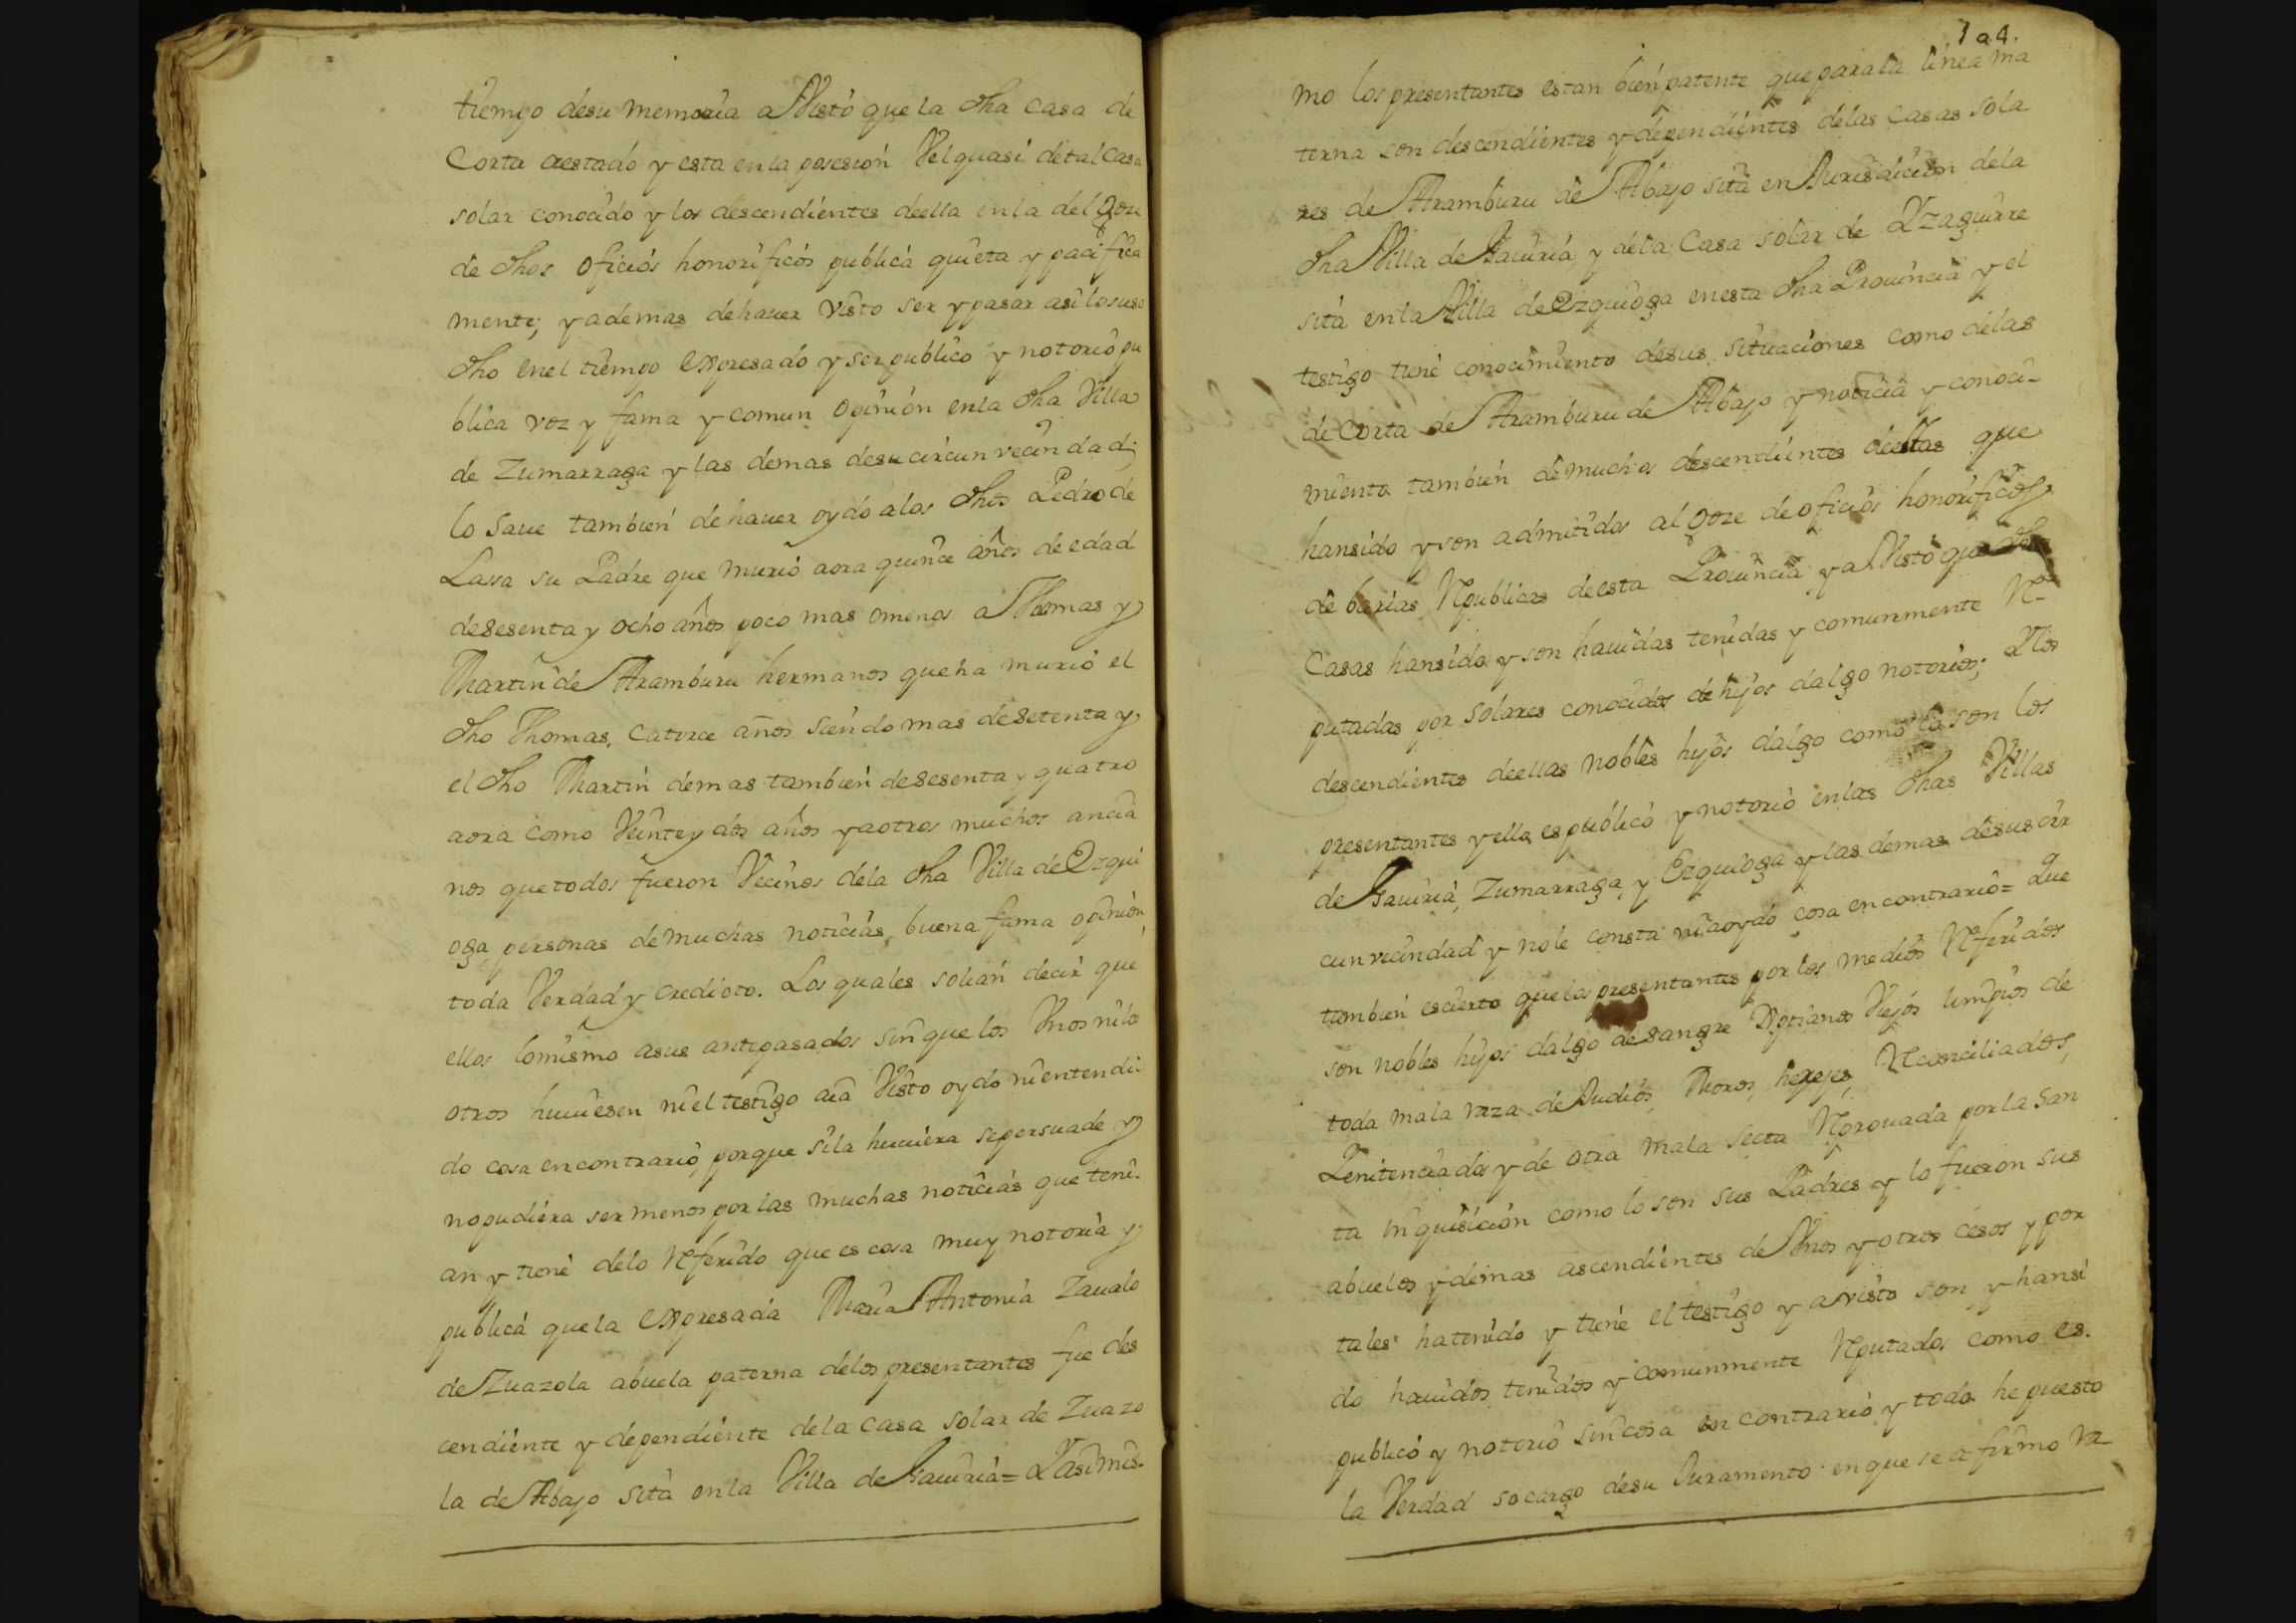 tiempo desu memoria a Visto que la dha casa de
Corta aestado y esta en la posesion Vel quasi de tal casa
solar conocido y los descendientes deella en la del Goze
de dhos oficios honorificos publica quieta y pacifica
mente; y ademas dehauer visto ser y pasar asi lo suso
dho enel tiempo expresado y ser publico y notorio pu
blica voz y fama y comun opinion enla dha Villa
de Zumarraga y las demas desu circunvecindad;
lo saue tambien de hauer oydo a los dhos Pedro de
Lasa su Padre que murio aora quince años de edad
desesenta y ocho años poco mas omenos a Thomas y
Martin de Aramburu hermanos que ha murio el
dho Thomas, catorce años siendo mas desetenta y
el dho Martin demas tambien desesenta y quatro
aora como Veinte y dos años y aotros muchos ancia
nos que todos fueron Vecinos dela dha Villa de Ezqui
oga, personas de muchas noticias, buena fama opinion,
toda Verdad y credicto. Los quales solian decir que
ellos lomismo asus antepasados sin que los Vnos nilos
otros huuiesen niel testigo aia Visto oydo ni entendi-
do cosa en contrario, porque sila huuiera sepersuade y
nopudiera ser menos por las muchas noticias que teni-
an y tiene delo Referido que es cosa muy notoria y
publica quela expresada Maria Antonia Zaualo
de Zuazola abuela paterna delos presentantes fue des
cendiente y dependiente dela casa solar de Zuazo
la de Abajo sita en la Villa de Gauiria= Yasimis-
1 a 4.
mo los presentantes estan bien patente que para la linea ma
terna son descendientes y dependientes delas Casas sola
res de Aramburu de Abajo sita en Jurisdicion dela
dha Villa de Gauiria, y dela Casa solar de Yzaguirre
sita en la Villa de Ezquioga enesta dha Prouincia y el
testigo tiene conocimiento desus situaciones como delas
de Corta de Aramburu de Abajo y noticia y conoci-
miento tambien de muchos descendientes deellas que
hansido y son admitidos al Goze de oficios honorificos
de barias Republicas deesta Prouincia y a Visto que dhas
Casas hansido y son hauidas tenidas y comunmente Re-
putadas por solares conocidos de hijos dalgo notorios; Ylos
descendientes deellas nobles hijos dalgo como lo son los
presentantes y ella es publico y notorio enlas dhas Villas
de Gauiria, Zumarraga, y Ezquioga y las demas desus cir
cunvecindad y nole consta ni aoydo cosa en contrario= Que
tambien escierto que los presentantes por los medios Referidos
son nobles hijos dalgo de sangre Xptianos Viejos limpios de
toda mala raza de Judios, Moros, herejes, Reconciliados,
Penitenciados y de otra mala secta Reprouada por la San
ta Inquisicion como lo son sus Padres y lo fueron sus
abuelos y demas ascendientes de Vnos y otros cesos y por
tales ha tenido y tiene el testigo y a visto son y hansi
do hauidos, tenidos y comunmente Reputados como es.
publico y notorio sin cosa en contrario y todo he puesto
la Verdad socargo desu Juramento en que se afirmo ra